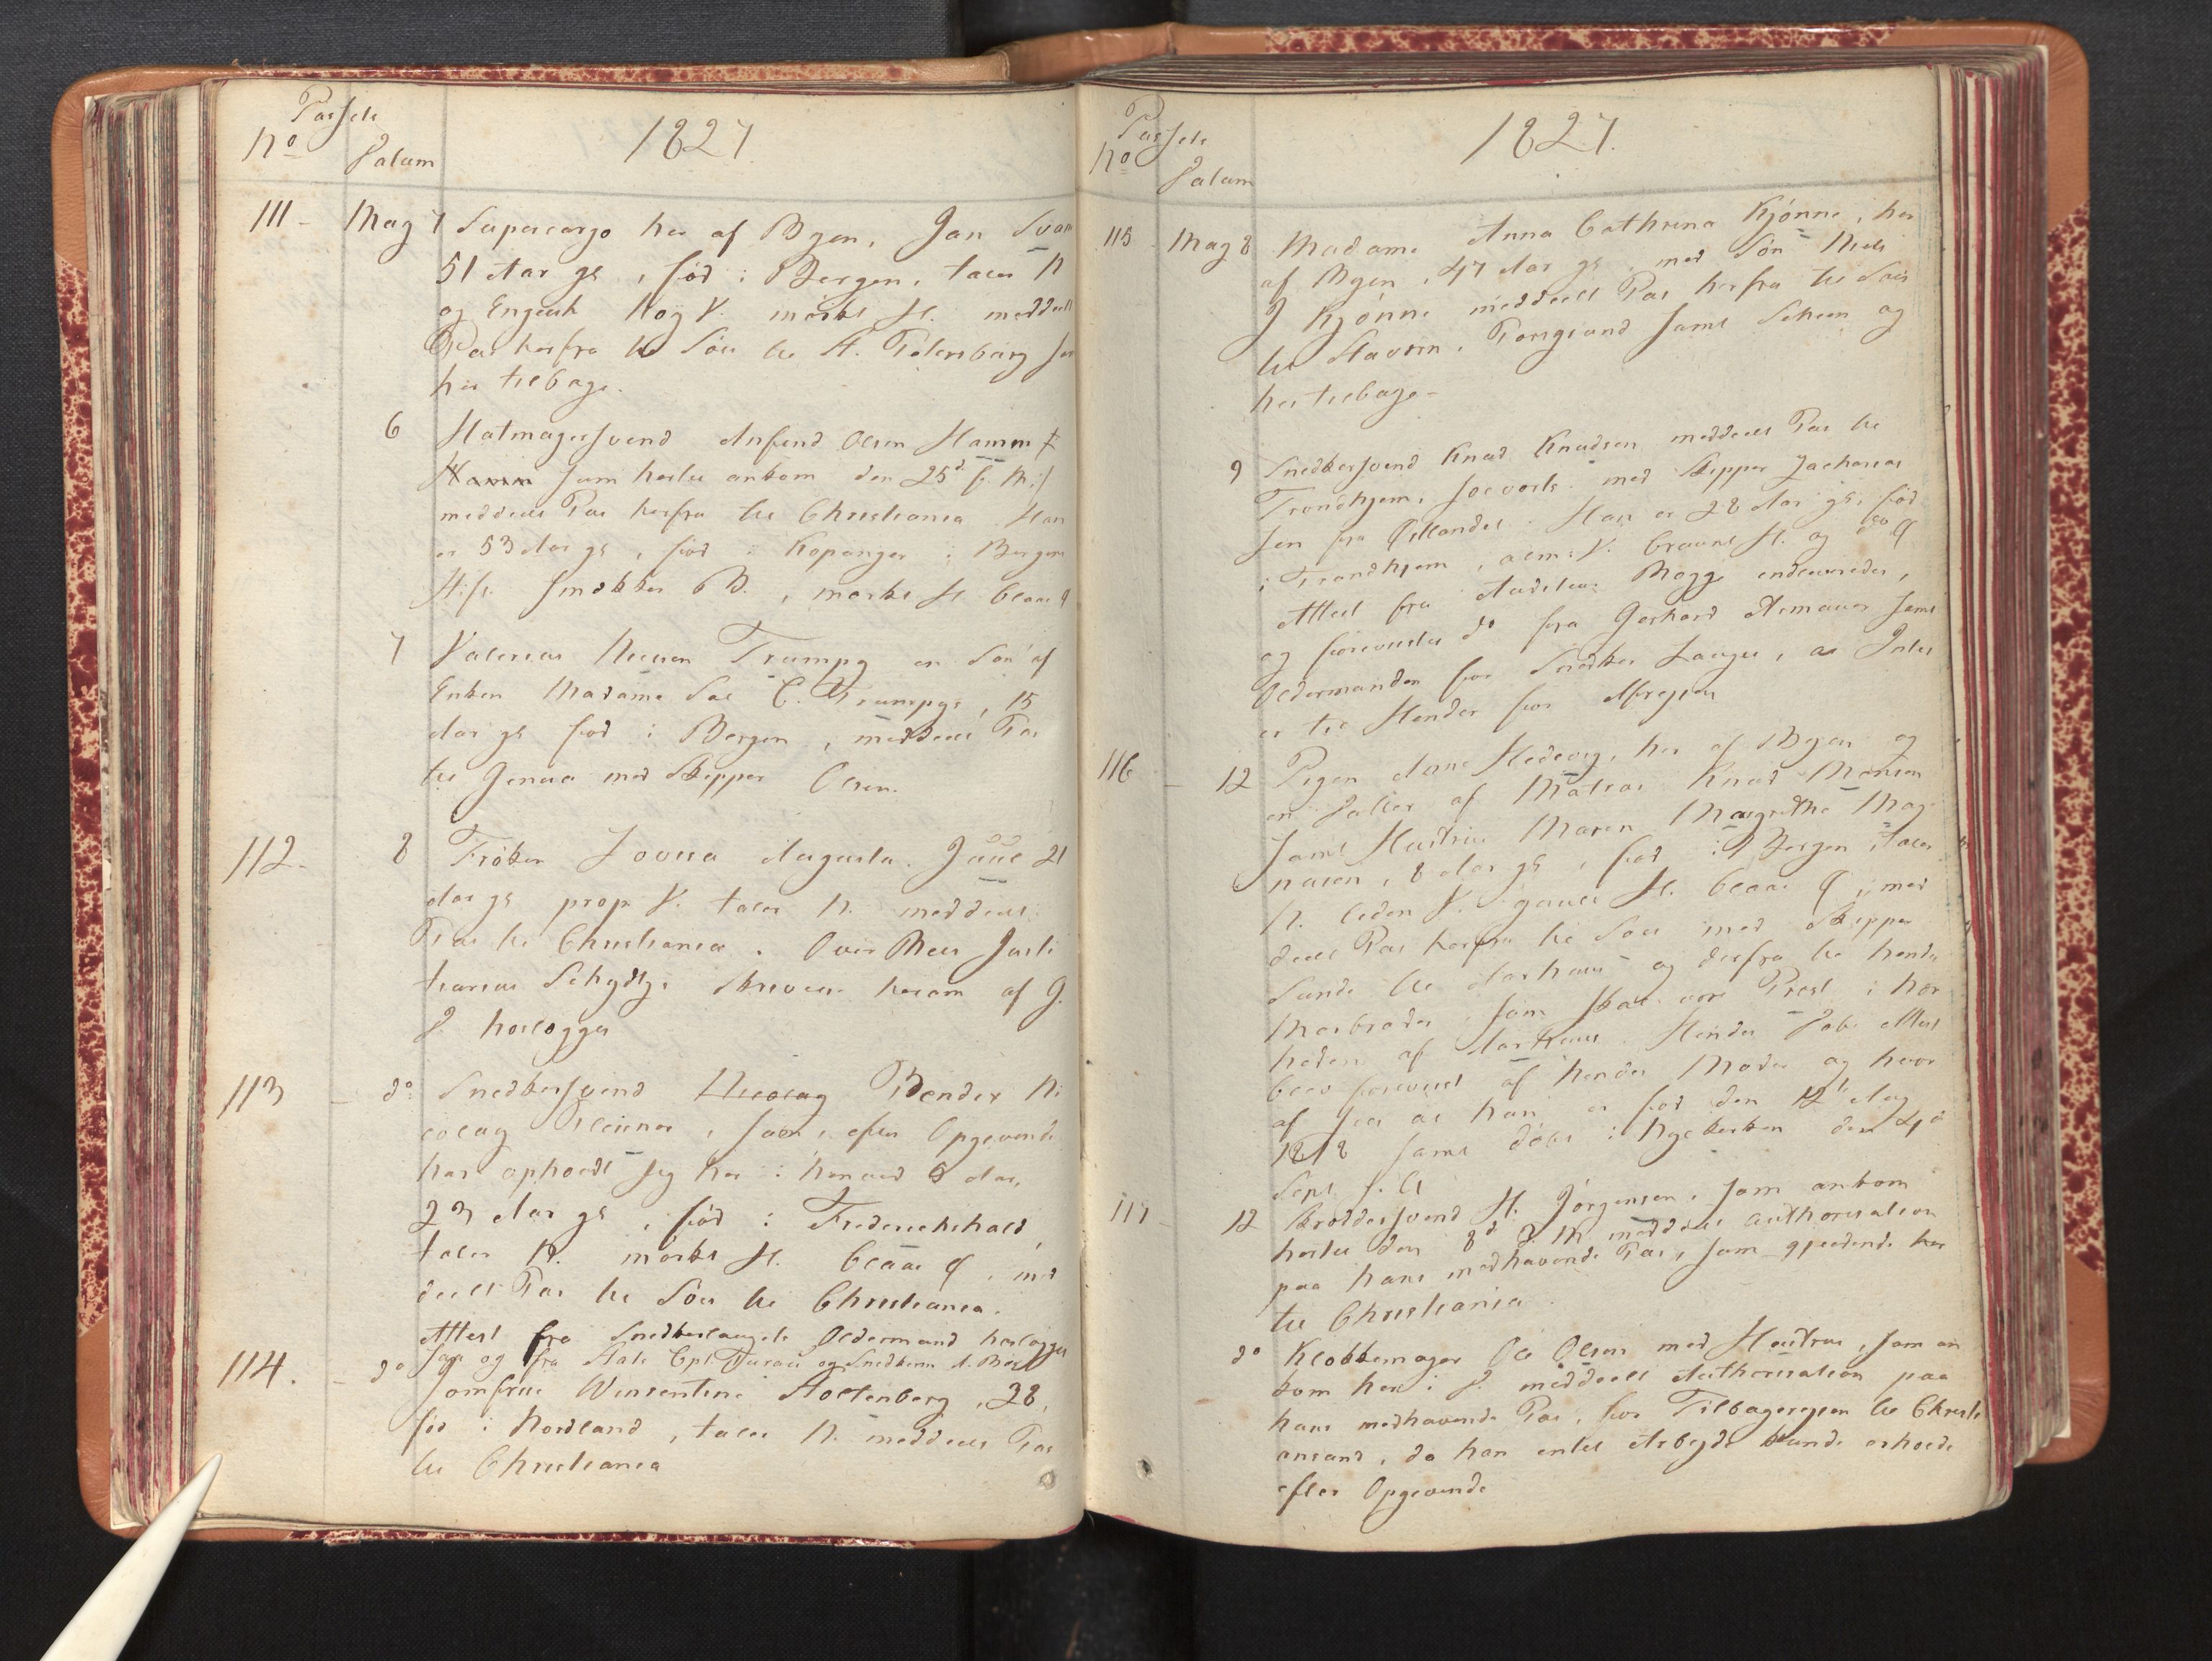 Passets
No Datum 1827
111 - May 7 Supercargo her af Byen, Jan
51 Aar gl, fød i Bergen, taler N
og Engelsk Høy V. mørkt H. meddeelt
Pas herfra til Søes til St. Petersburg
her tilbage.
6 Hatmagersvend Anfind Olsen Hamm
som hertil ankom den 25d f. M:
meddeelt Pas herfra til Christiania Han
er 53 Aar gl, fød i Kopanger i Bergens
Stift B., mørkt H. blaae
7 Valerius Nielsen Trumpy en Søn af
Enken Madame Sal C. Trumpys, 15
Aar gl fød i Bergen, meddeelt Pas
til Genua med Skipper Olsen.
112. 8 Frøken Lovisa Augusta Juul 21
Aar gl prop V. taler N. meddeelt
Pas til Christiania. Over Rets Justi
tiarius Schydtz Skrivelse herom af G.
D. henlægges
113 - do Snedkersvend Nicolay Bendix Ni
colay Pleiner, som, efter Opgivende
har opholdt sig her i henved 6 Aar,
23 Aar gl, fød i Friderichshald,
taler N. mørkt H. blaae, med
deelt Pas til Søes til Christiania.
Attest fra Snedkerlaugets Oldermand henlægges
114. - do Jomfrue Winsentine Stoltenberg, 28,
fød i Nordland, taler N. meddeelt Pas
til Christiania
Passets
No Datum 1827.
115 May 8 Madame Anna Cathrina Kjønne, her
af Byen, 47 Aar gl, med Søn Niels
J Kjønne meddeelt Pas herfra til Søes
til Stavern, Porsgrund samt Scheen og
her tilbage -
9 Snedkersvend Knud Knudsen meddeelt Pas til
Trondhjem, med Skipper Zacharias
sen fra Østlandet. Han er 28 Aar gl, fød
i Trondhjem, alm: V. bruunt H. og do
Attest fra Auditeur Bøgge indleveredes,
og foreviiste do fra Gerhard Armauer samt
Oldermanden for Snedker Lauget, at Intet
er til Hinder for Afreysen
116 - 12 Pigen Ane Hedevig, her af Byen og
en Datter af Matros Knud Monsen
samt Hustrue Maren Margrethe Mag
nusen, 8 Aar gl, fød i Bergen, taler
N. liden V. guult H. blaae, med
deelt Pas herfra til Søes med Skipper
Sunde til Aarhuus og derfra til hendes
Morbroder, som skal være Præst i Nær
heden af Aarhuus. Hendes Døbe Attest
blev foreviist af hendes Moder og hvor
af sees at hun er fød den 12te Aug
1818 samt døbt i Nykirken den 4de
Sept s. A
117 - 12 Skrædersvend H. Jørgensen, som ankom
hertil den 8d d. M. meddeelt Authorisation
paa hans medhavende Pas, som gjeldende her
til Christiania
do Klokkemager Ole Olsen med Hustrue, som an
kom her i D. meddeelt Authorisation paa
hans medhavende Pas, for Tilbagereysen til Christi
ansand, da han intet Arbeyde kunde erholde
efter Opgivende